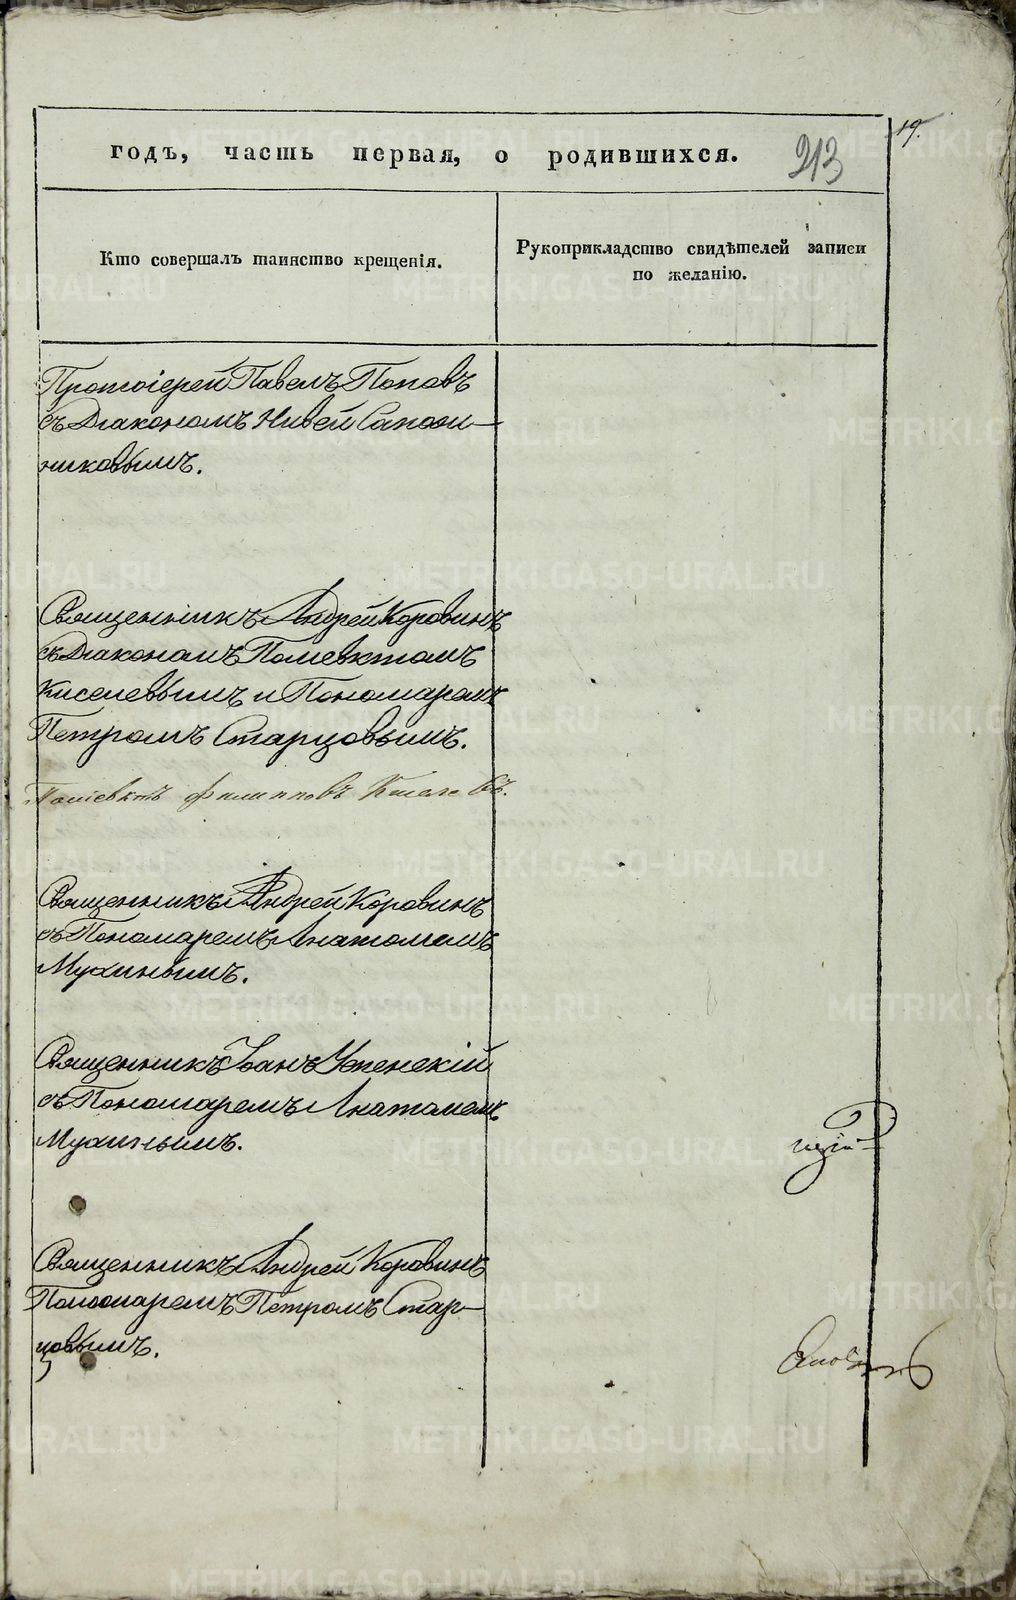 19.
годъ, часть первая, о родившихся.
213
Кто совершалъ таинство крещенія.
Рукоприкладство свидѣтелей записи
по желанію.
Протоіерей Павелъ Поповъ
съ Діакономъ Сапож-
никовымъ.
Священникъ Андрей Коровинъ
съ Діакономъ Полиевктомъ
Киселевымъ и Пономаремъ
Петромъ Старцовымъ.
Поліевктъ Филипповъ Киселевъ.
Священникъ Андрей Коровинъ
съ Пономаремъ Анатолемъ
Мухинымъ.
Священникъ Іванъ Успенскій
съ Пономаремъ Анатолемъ
Мухинымъ.
Священникъ Андрей Коровинъ
Пономаремъ Петромъ Стар-
цовымъ.
METRIKI.GASO-URAL.RU